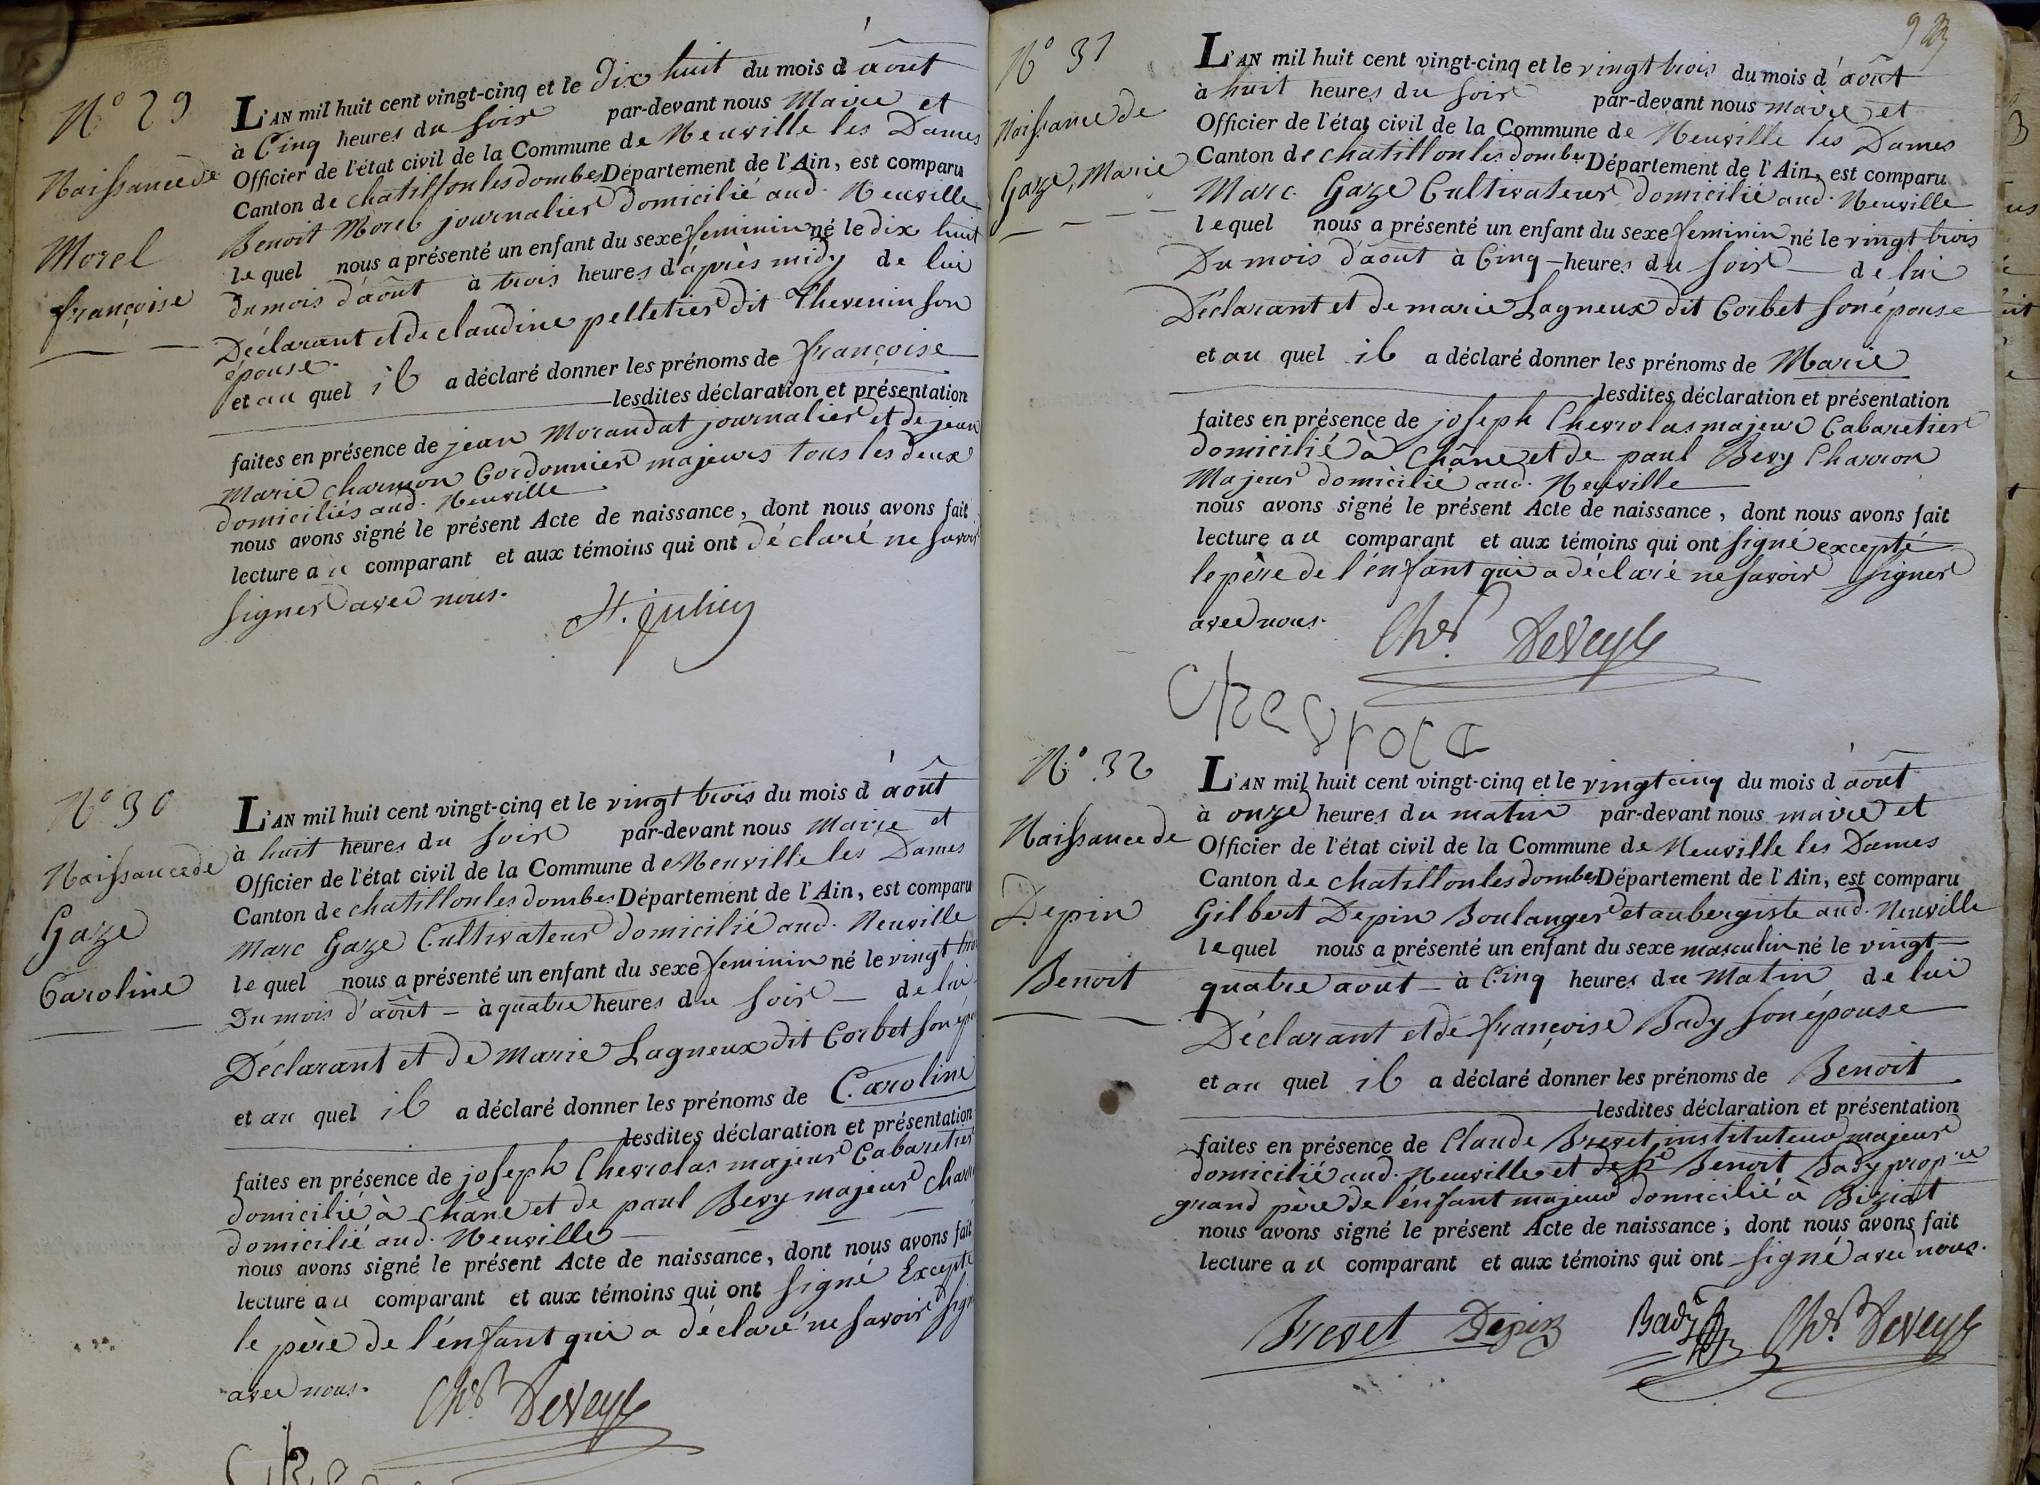 N° 29
Naissance de
Morel
françoise
L'AN mil huit cent vingt-cinq et le dix huit du mois d'août
à Cinq heures du soir par-devant nous Maire et
Officier de l'état civil de la Commune de Neuville les Dames
Canton de chatillon les dombes Département de l'Ain, est comparu
Benoit Morel journalier domicilié aud. Neuville
lequel nous a présenté un enfant du sexe feminin né le dix huit
Du mois d'août à trois heures d'après midy de lui
Déclarant et de claudine pelletier dit Thevenin son
épouse.
et au quel il a déclaré donner les prénoms de françoise
lesdites déclaration et présentation
faites en présence de jean Morandat journalier et de jean
Marie charmon Cordonnier majeurs tous les deux
domiciliés aud. Neuville
nous avons signé le présent Acte de naissance, dont nous avons fait
lecture au comparant et aux témoins qui ont déclaré ne savoir
signer avec nous.
N° 30
Naissance de
Gaze
Caroline
L'AN mil huit cent vingt-cinq et le vingt trois du mois d'août
à huit heures du soir par-devant nous Maire et
Officier de l'état civil de la Commune de Neuville les Dames
Canton de chatillon les dombes Département de l'Ain, est comparu
Marc Gaze Cultivateur domicilié aud. Neuville
lequel nous a présenté un enfant du sexe feminin né le vingt trois
Du mois d'août à quatre heures du soir de lui
Déclarant et de Marie Lagneux dit Corbet son
et au quel il a déclaré donner les prénoms de Caroline
lesdites déclaration et présentation
faites en présence de joseph Chevrolas majeur Cabaretier
domicilié à Chane et de paul Bevy majeur
domicilié aud. Neuville
nous avons signé le présent Acte de naissance, dont nous avons fait
lecture au comparant et aux témoins qui ont signé Excepté
le père de l'enfant qui a déclaré ne savoir
avec nous.
Cher. DeVeyle
N° 31
Naissance de
Gaze, Marie
L'AN mil huit cent vingt-cinq et le vingt trois du mois d'août
à huit heures du soir par-devant nous maire et
Officier de l'état civil de la Commune de Neuville les Dames
Canton de chatillon les dombes Département de l'Ain, est comparu
Marc Gaze Cultivateur domicilié aud. Neuville
lequel nous a présenté un enfant du sexe feminin né le vingt trois
Du mois d'août à Cinq heures du soir de lui
Déclarant et de marie Lagneux dit Corbet son épouse
et au quel il a déclaré donner les prénoms de Marie
lesdites déclaration et présentation
faites en présence de joseph Chevrolas majeur Cabaretier
domicilié à Chane et de paul Bevy Charron
Majeur domicilié aud. Neuville
nous avons signé le présent Acte de naissance, dont nous avons fait
lecture au comparant et aux témoins qui ont signé excepté
le père de l'enfant qui a déclaré ne savoir signer
avec nous.
Cher. DeVeyle
N° 32
Naissance de
Depin
Benoit
L'AN mil huit cent vingt-cinq et le vingt cinq du mois d'août
à onze heures du matin par-devant nous maire et
Officier de l'état civil de la Commune de Neuville les Dames
Canton de chatillon les dombes Département de l'Ain, est comparu
Gilbert Depin Boulanger et aubergiste aud. Neuville
lequel nous a présenté un enfant du sexe masculin né le vingt
quatre août à Cinq heures du Matin de lui
Déclarant et de françoise Bady son épouse
et au quel il a déclaré donner les prénoms de Benoit
lesdites déclaration et présentation
faites en présence de Claude Brevet instituteur majeur
domicilié aud. Neuville et de Sr Benoit Bady propre
grand père de l'enfant majeur domicilié à Biziat
nous avons signé le présent Acte de naissance, dont nous avons fait
lecture au comparant et aux témoins qui ont signé avec nous.
Brevet Depin Bady Cher. DeVeyle